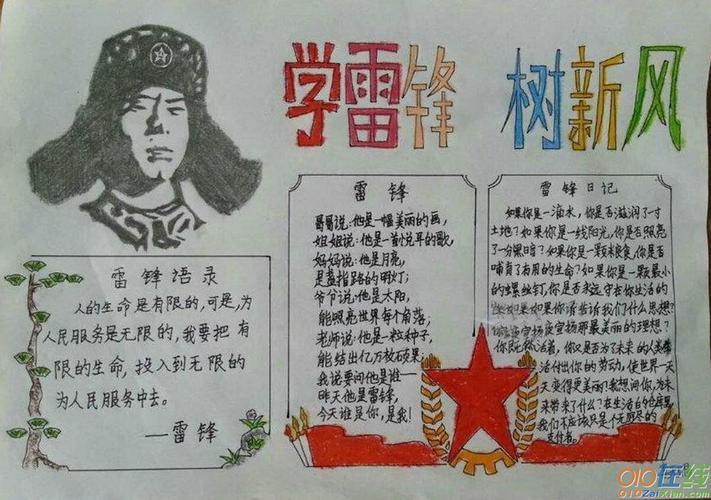 学雷锋 树新风
雷锋语录
人的生命是有限的,可是,为
人民服务是无限的,我要把有
限的生命,投入到无限的
为人民服务中去。
—雷锋
雷锋
哥哥说:他是一幅美丽的画,
姐姐说:他是一首悦耳的歌,
妈妈说:他是月亮,
是盏指路的明灯;
爷爷说:他是太阳,
能照亮世界每个角落;
老师说:他是一粒种子,
能结出亿万枚硕果;
我说要问他是谁—
昨天他是雷锋,
今天谁是你,是我!
雷锋日记
如果你是一滴水,你是否滋润了一寸
土地?如果你是一线阳光,你是否照亮
了一分黑暗?如果你是一颗粮食,你是否
哺育了有用的生命?如果你是一颗最小
的螺丝钉,你是否永远守在你生活的
如果你告诉我们什么思想?
你是否宣扬那最美丽的理想?
你既然活着,你又是否为了未来的人类
付出你的劳动,使世界一天
天变得更美丽?我想问你,为未
来带来了什么?在生活的仓库里,
我们不应该只是个无穷尽的
支付者。
010在线
010ZaiXian.com